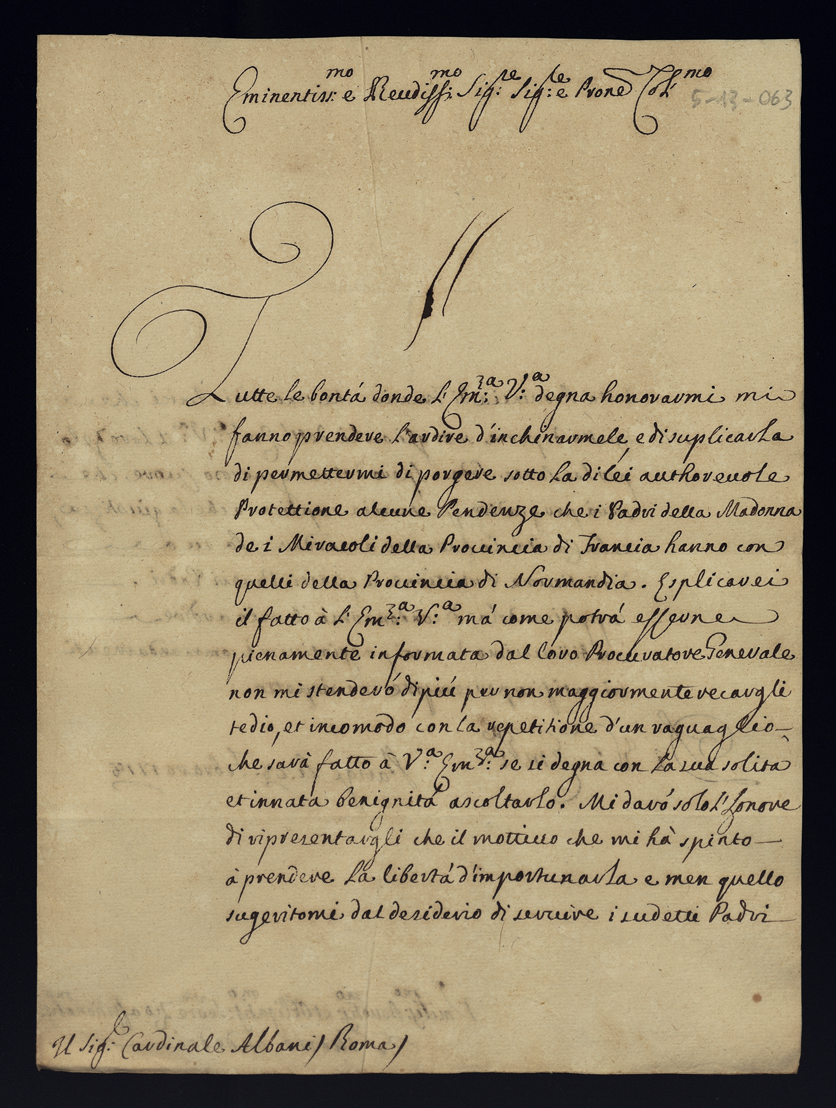 Eminentiss:mo e Reudiss:mo Sig:re Sig:re e Prone Col:mo
5-13-063
Tutte le bontá donde L'Em:za V:a degna honorarmi mi
fanno prendere l'ardire d'inchinarmele, e di suplicarla
di permettermi di porgere sotto La di léi authoreuole
Protettione alcune Pendenze che i Padri della Madonna
de i Miracoli della Prouincia di Francia hanno con
quelli della Prouincia di Normandia. Esplicarei
il fatto à L'Em:za V:a má come potrá esserne
pienamente informata dal loro Procuratore Generale
non mi stenderó di piú per non maggiormente recargli
tedio, et incomodo con la repetitione d'un raguaglio
che sarà fatto à V:a Em:za se si degna con La sua solita
et innata benignitá ascoltarlo. Mi daró solo l'honore
di ripresentargli che il mottiuo che mi hà spinto
à prendere La libertá d'importunarla e men quello
sugeritomi dal desiderio di seruire i sudetti Padri
Il Sig:le Cardinale Albani / Roma /